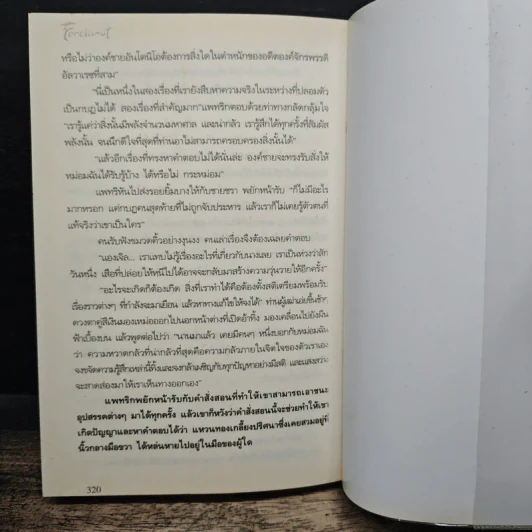 หรือไม่ว่าองค์ชายอันโตนิโอต้องการสิ่งใดในตำหนักของอดีตองค์จักรพรรดิ
อัลวาเรซที่สาม"
"นี่เป็นหนึ่งในสองเรื่องที่เรายังสืบหาความจริงในระหว่างที่ปลอมตัว
เป็นกบฏไม่ได้ สองเรื่องที่สำคัญมาก" แพทริกตอบด้วยท่าทางกลัดกลุ้มใจ
"เรารู้แค่ว่าสิ่งนั้นมีพลังจำนวนมหาศาล และน่ากลัว เรารู้สึกได้ทุกครั้งที่สัมผัส
พลังนั้น จนนึกดีใจที่สุดที่ท่านอาไม่สามารถครอบครองสิ่งนั้นได้"
"แล้วอีกเรื่องที่ทรงหาคำตอบไม่ได้นั่นล่ะ องค์ชายจะทรงรับสั่งให้
หม่อมฉันได้รับรู้บ้าง ได้หรือไม่ กระหม่อม"
แพทริกหันไปส่งรอยยิ้มบางให้กับชายชรา พยักหน้ารับ "ก็ไม่มีอะไร
มากหรอก แค่กบฏคนสุดท้ายที่ไม่ถูกจับประหาร แล้วเราก็ไม่เคยรู้ตัวตนที่
แท้จริงว่าเขาเป็นใคร"
คนรับฟังขมวดคิ้วอย่างงุนงง คนเล่าเรื่องจึงต้องเฉลยคำตอบ
"แองเจิล... เราแทบไม่รู้เรื่องอะไรที่เกี่ยวกับนางเลย เราเป็นห่วงว่าสัก
วันหนึ่ง เสือที่ปล่อยให้หนีไปได้อาจจะกลับมาสร้างความวุ่นวายให้อีกครั้ง"
"อะไรจะเกิดก็ต้องเกิด สิ่งที่เราทำได้คือต้องตั้งสติเตรียมพร้อมรับ
เรื่องราวต่างๆ ที่กำลังจะมาเยือน แล้วหาทางแก้ไขให้จงได้" ท่านผู้เฒ่าเอ่ยขึ้นช้าๆ
ดวงตาคู่สีเงินมองเหม่อออกไปนอกหน้าต่างที่เปิดอ้าทิ้ง มองเคลื่อนไปยังผืน
ฟ้าเบื้องบน แล้วพูดต่อไปว่า "นานมาแล้ว เคยมีคนๆ หนึ่งบอกกับหม่อมฉัน
ว่า ความหวาดกลัวที่น่ากลัวที่สุดคือความกลัวภายในจิตใจของตัวเราเอง
จงขจัดความรู้สึกเหล่านี้ทิ้งและจงกล้าเผชิญกับทุกปัญหาอย่างมีสติ และแสงสว่าง
จะสาดส่องมาให้เราเห็นทางออกเอง"
แพทริกพยักหน้ารับกับคำสั่งสอนที่ทำให้เขาสามารถเอาชนะ
อุปสรรคต่างๆ มาได้ทุกครั้ง แล้วเขาก็หวังว่าคำสั่งสอนนี้จะช่วยทำให้เขา
เกิดปัญญาและหาคำตอบได้ว่า แหวนทองเกลี้ยงปริศนาซึ่งเคยสวมอยู่ที่
นิ้วกลางมือขวา ได้หล่นหายไปอยู่ในมือของผู้ใด
320